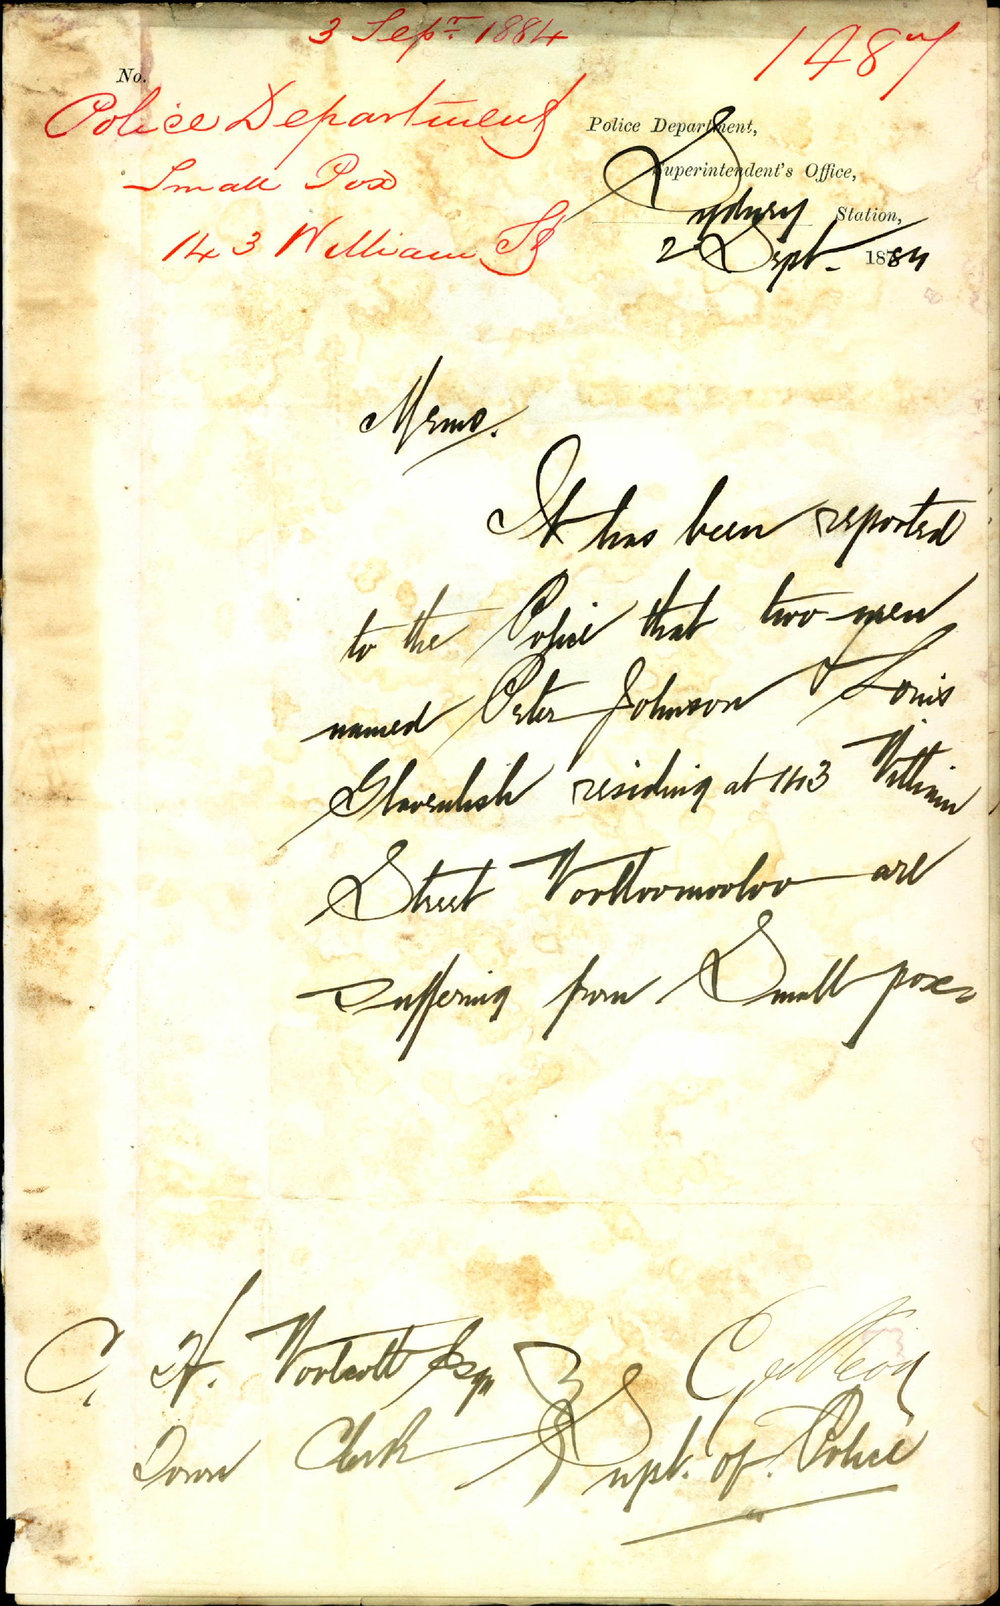 3 Sepr. 1884
1487
No.
Police Department
Small Pox
143 William St
Police Department,
Superintendent's Office,
Sydney Station,
2 Sept. 1884
Memo.
It has been reported
to the Police that two men
named Peter Johnson & Louis
residing at 143 William
Street Woolloomooloo are
suffering from Small pox
C. H. Woolcott Esqr
Town Clerk
Supt. of Police